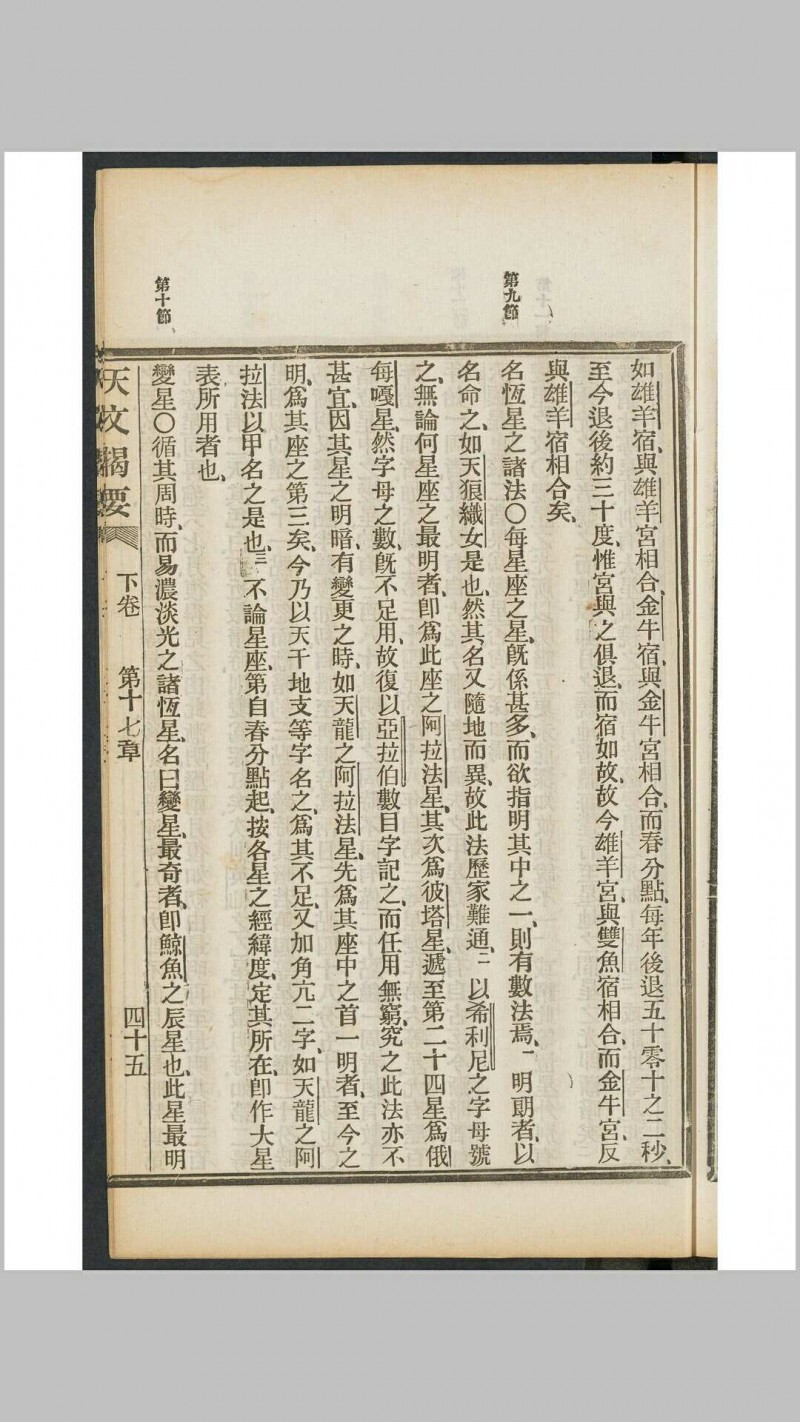 如雄羊宿、與雄羊宮相合、金牛宿、與金牛宮相合、而春分點、每年後退五十零十之二秒、
至今退後約三十度、惟宮與之俱退、而宿如故、故今雄羊宮、與雙魚宿相合、而金牛宮、反
與雄羊宿相合矣、
第九節
名恆星之諸法〇每星座之星、旣係甚多、而欲指明其中之一、則有數法焉、一 明朗者、以
名命之、如天狼織女是也、然其名又隨地而異、故此法歷家難通、二 以希利尼之字母號
之、無論何星座之最明者、卽爲此座之阿拉法星、其次爲彼塔星、遞至第二十四星爲俄
每嘎星、然字母之數、旣不足用、故復以亞拉伯數目字記之、而任用無窮、究之此法亦不
甚宜、因其星之明暗、有變更之時、如天龍之阿拉法星、先爲其座中之首一明者、至今之
明、爲其座之第三矣、今乃以天干地支等字名之、爲其不足、又加角亢二字、如天龍之阿
拉法以甲名之是也、三 不論星座、第自春分點起、按各星之經緯度、定其所在、卽作大星
表所用者也、
第十節
變星〇循其周時、而易濃淡光之諸恆星、名曰變星、最奇者、卽鯨魚之辰星也、此星最明
天文揭要 下卷 第十七章 四十五